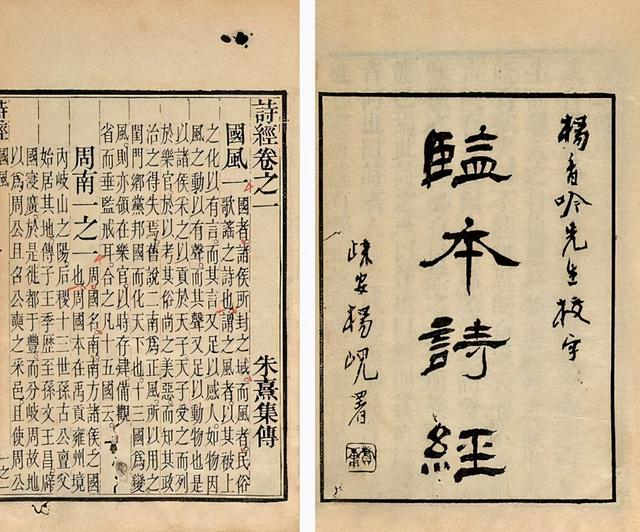 楊香吟先生校字
監本詩經
歸安楊峴署
詩經卷之一
朱熹集傳
國風一
國者諸侯所封之域而風者民俗
歌謠之詩也謂之風者以其被上
之化以有言而其言又足以感人如物因
風之動以有聲而其聲又足以動物也是
以諸侯采之以貢於天子天子受之而列
於樂官於以考其俗尚之美惡而知其政
治之得失焉舊說二南為正風所以用之
閨門鄉黨邦國而化天下也十三國為變
風則亦領在樂官以時存肄備觀
省而垂監戒耳合之凡十五國云
周南一之一
周國名南南方諸侯之國
也周國本在禹貢雍州境
內岐山之陽后稷十三世孫古公亶父
始居其地傳子王季歷至孫文王昌辟
國寖廣於是徙都于豐而分岐周故地
以為周公旦召公奭之采邑且使周公
詩經
國風